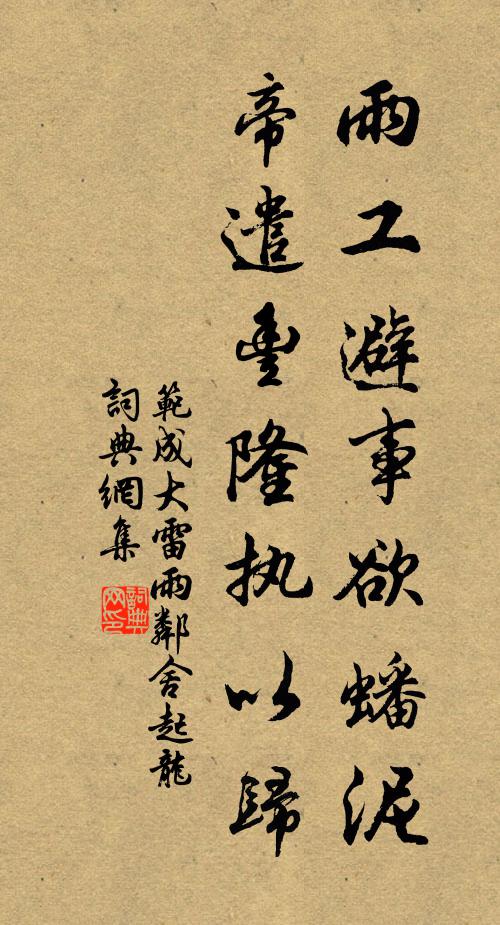 雨工避事欲蟠泥
帝遣豊隆执以歸
範成大雷雨鄰舍起龍
詞典網集
詞典网印